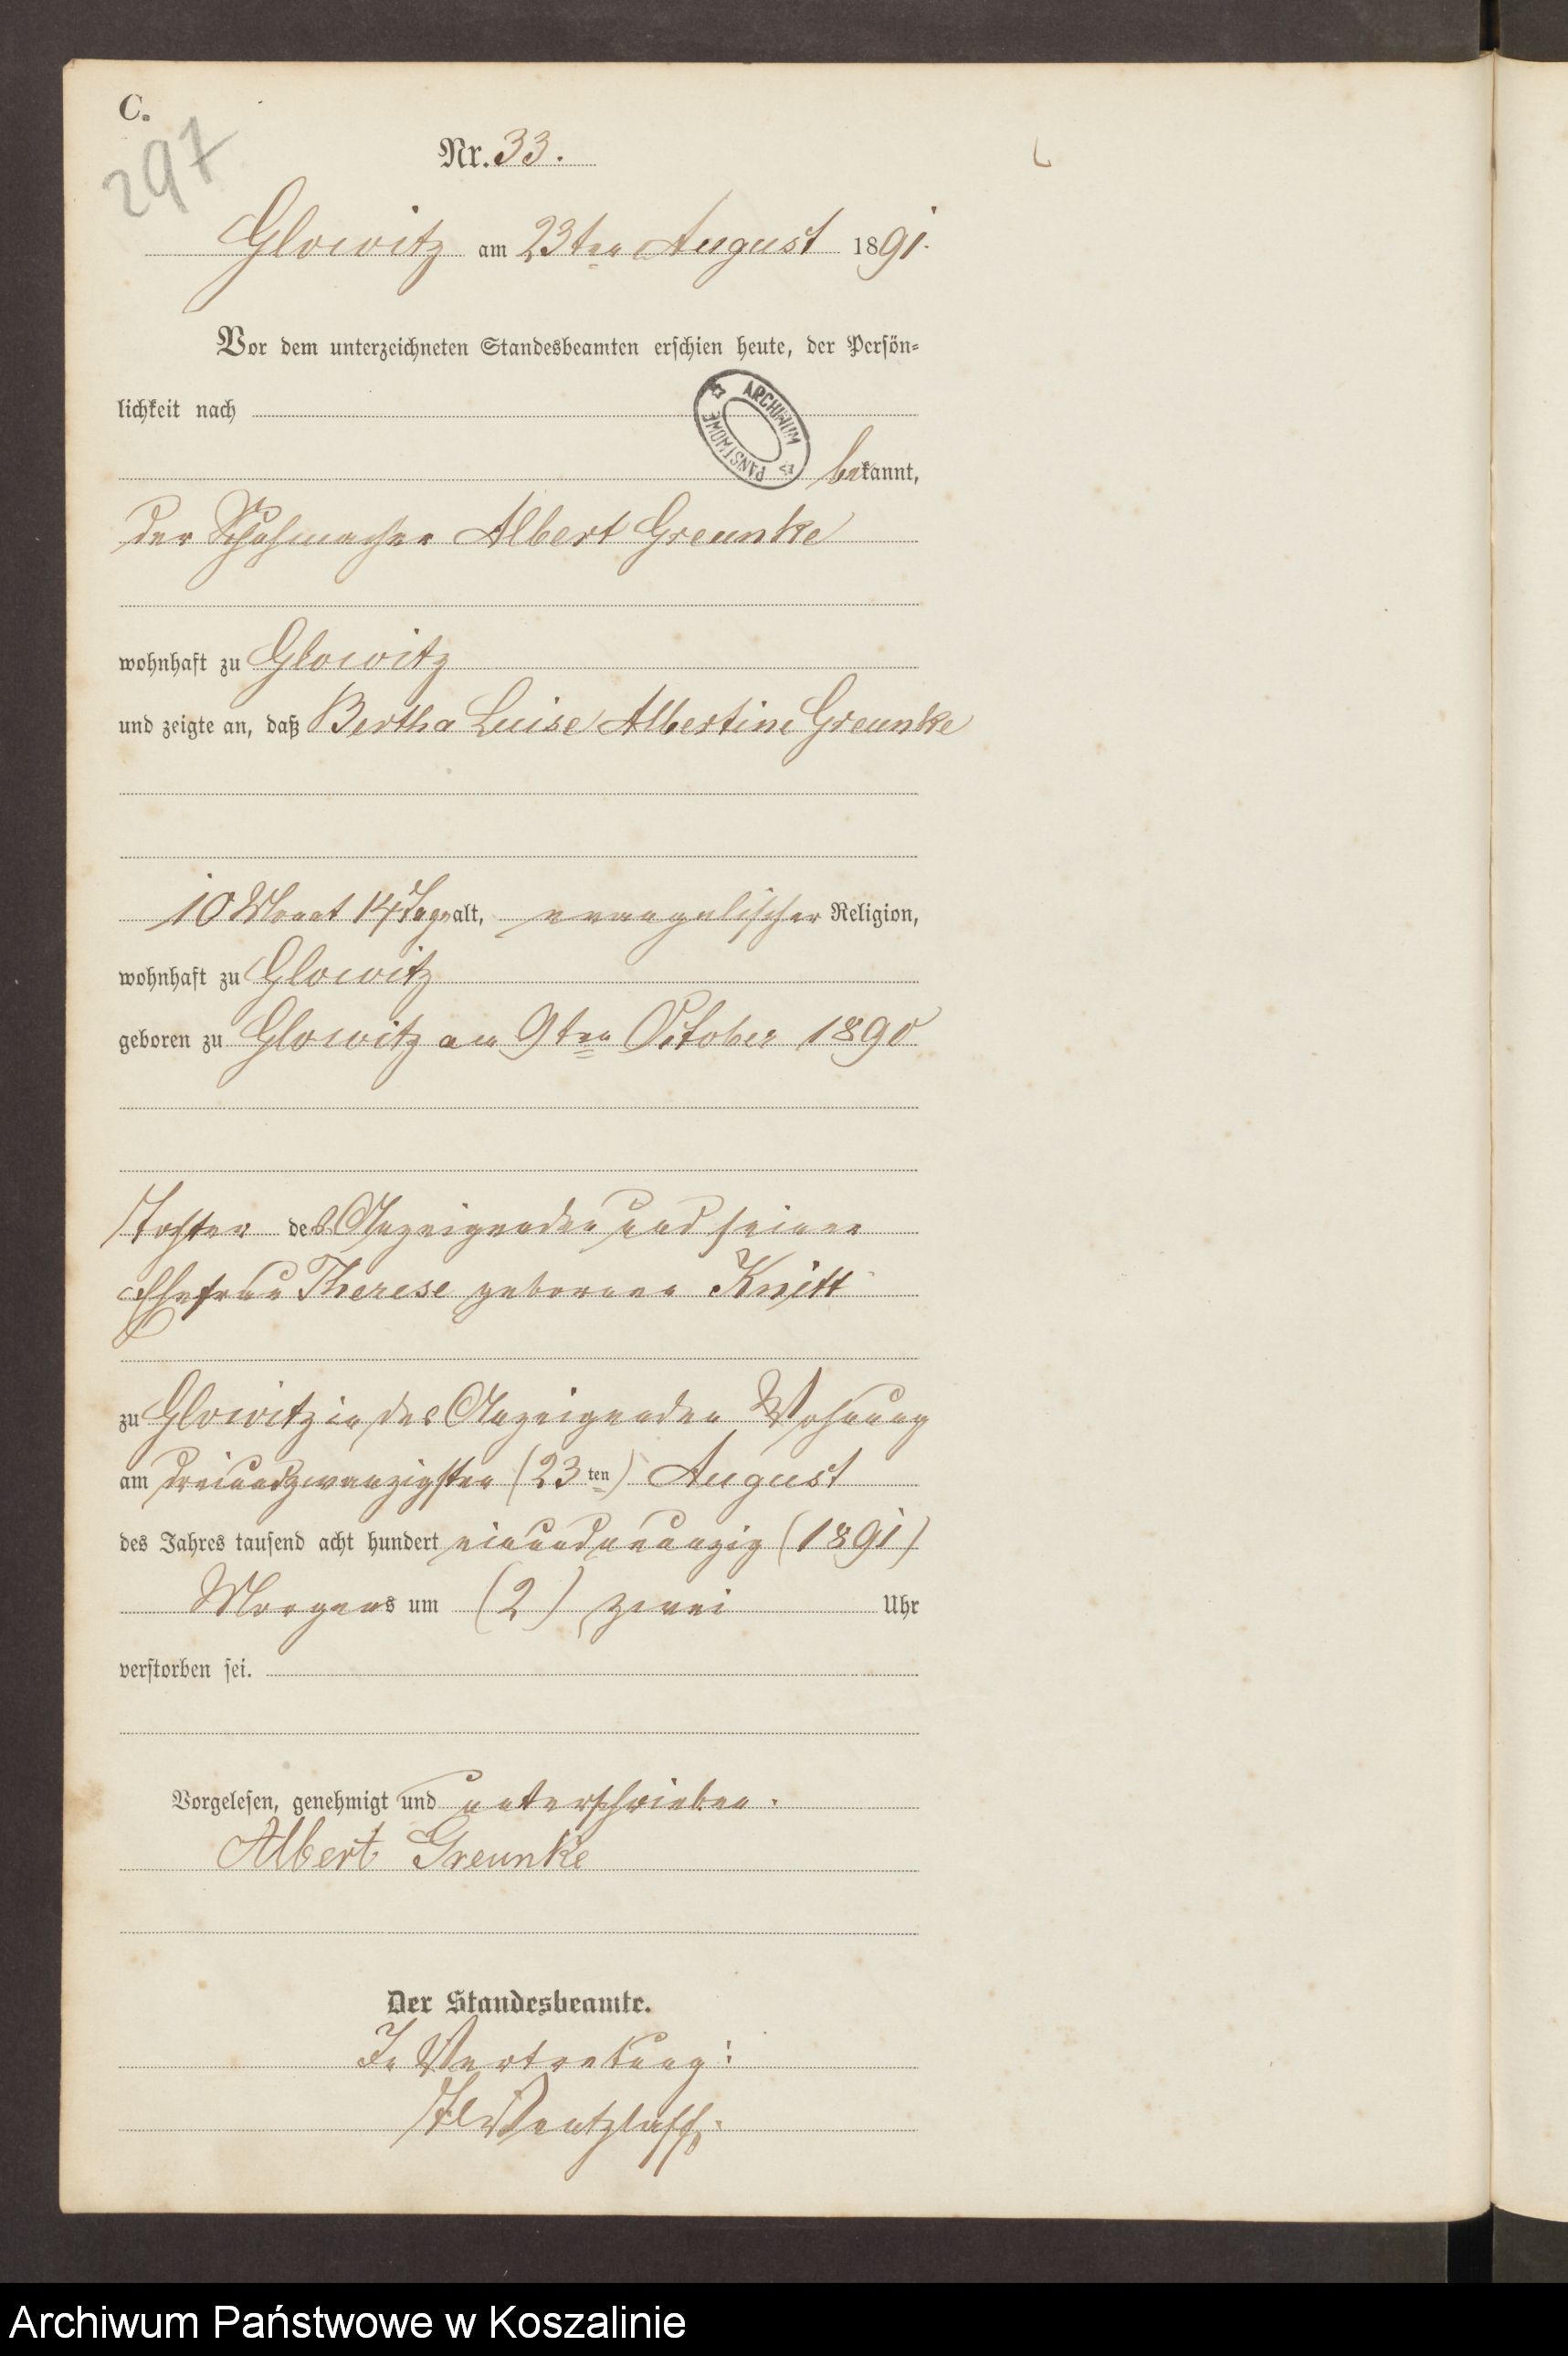 C.
297
Nr. 33.
Glowitz am 23ten August 1891.
Vor dem unterzeichneten Standesbeamten erschien heute, der Persön-
lichkeit nach
ARCHIWUM PAŃSTWOWE
bekannt,
der Schuhmacher Albert Greunke
wohnhaft zu Glowitz
und zeigte an, daß Bertha Luise Albertine Greunke
10 Monat 14 Tage alt, evangelischer Religion,
wohnhaft zu Glowitz
geboren zu Glowitz am 9ten October 1890
Tochter des Anzeigenden und seiner
Ehefrau Therese geborene Knitt
zu Glowitz in des Anzeigenden Wohnung
am dreiundzwanzigsten (23ten) August
des Jahres tausend acht hundert einundneunzig (1891)
Morgens um (2) zwei Uhr
verstorben sei.
Vorgelesen, genehmigt und unterschrieben.
Albert Greunke
Der Standesbeamte.
In Vertretung:
Wentzlaff.
Archiwum Państwowe w Koszalinie